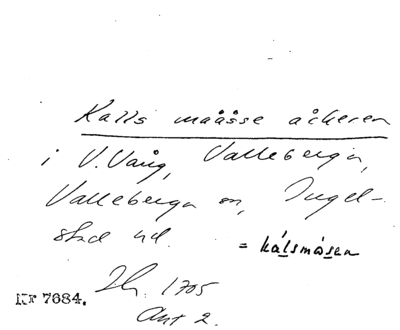 Kalls maåsse åckeren
i V. Vång, Valleberga,
Valleberga sn, Ingel-
stad hd. = kálsmåsen
Lh. 1705
Akt 2.
Nr 7684.